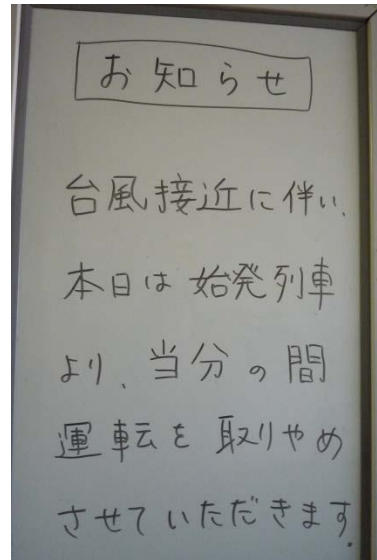 お知らせ
台風接近に伴い、
本日は始発列車
より、当分の間
運転を取りやめ
させていただきます.